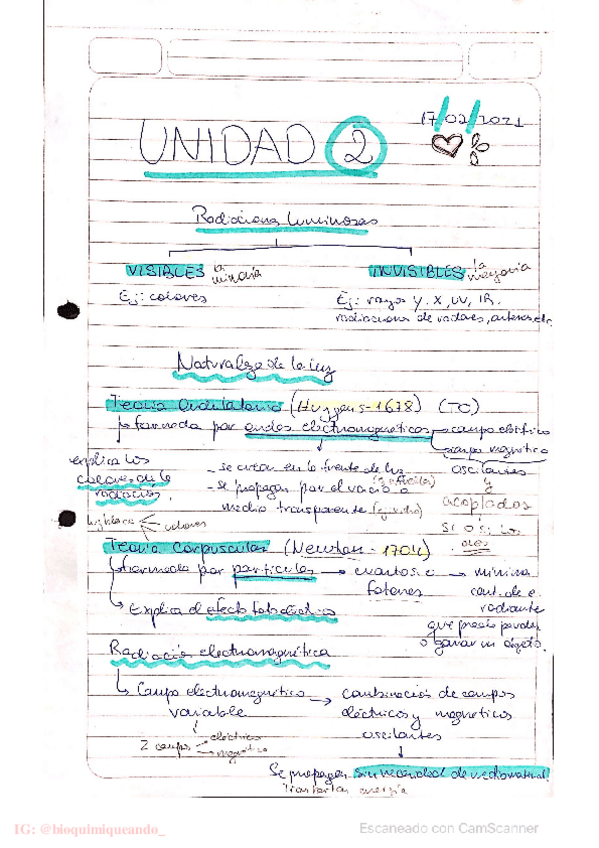 17/02/2021
UNIDAD 2
Radiaciones luminosas
VISIBLES la minoría
INVISIBLES la mayoría
Ej: colores
Ej: rayos γ, X, UV, IR.
radiaciones de radares, antenas etc.
Naturaleza de la luz
Teoría Ondulatoria (Huygens-1678) (TO)
formada por ondas electromagnéticas campo eléctrico
campo magnético
oscilantes
y
acoplados
sí o sí los
dos
explica los
colores de la
radiación.
- se crean en la fuente de luz
- se propagan por el vacío o
medio transparente
colores
Teoría Corpuscular (Newton-1704)
formada por partículas → cuantos o
fotones
→ mínima
cant. de e.
radiante
que puede perder
o ganar un objeto.
Explica el efecto fotoeléctrico
Radiación electromagnética
Campo electromagnético
variable
2 campos eléctrico
magnético
→ combinación de campos
eléctricos y magnéticos
oscilantes
Se propagan sin necesidad de medio material
Transportan energía
IG: @bioquimiqueando_
Escaneado con CamScanner